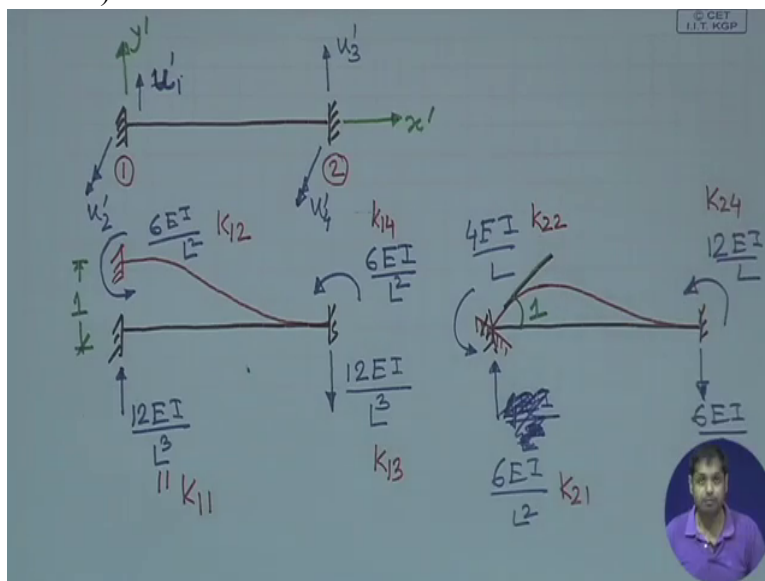 © CET
I.I.T. KGP
y'
u'₁
u'₃
x'
① ②
u'₂
u'₄
6EI/L² K₁₂
K₁₄
6EI/L²
1
12EI/L³
12EI/L³
" K₁₁
K₁₃
4EI/L K₂₂
K₂₄
12EI/L
1
6EI/L² K₂₁
6EI